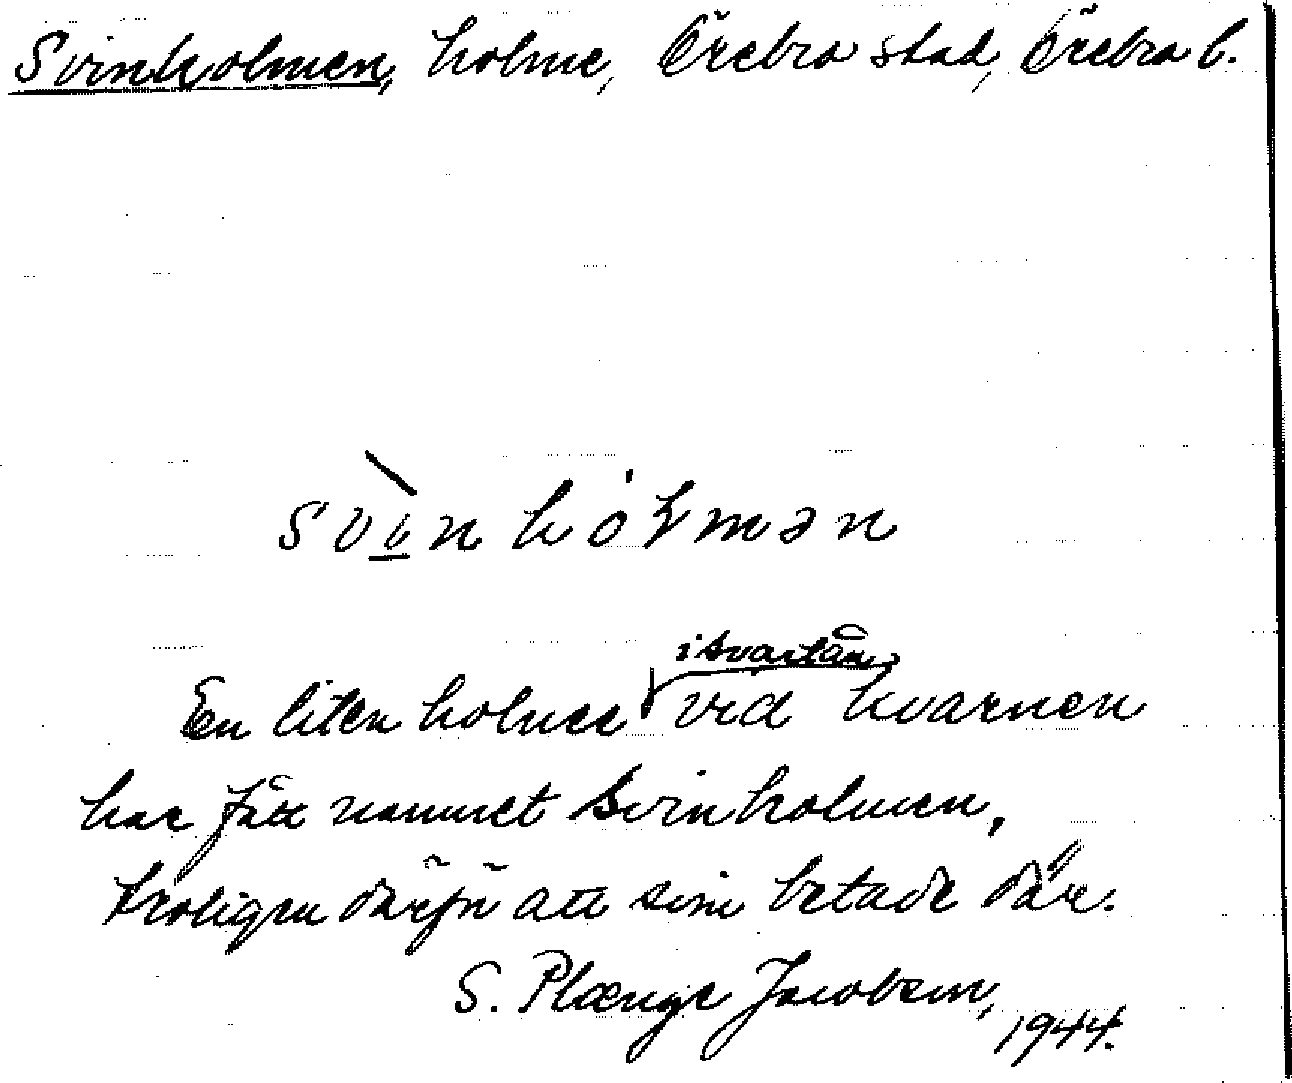 Svinholmen, holme, Örebro stad, Örebro l.
svì̲nhóɫmən
i Svartån,
En liten holme vid kvarnen
har fått namnet Svinholmen,
troligen därför att svin betade där.
S. Plænge Jacobson,
1944.